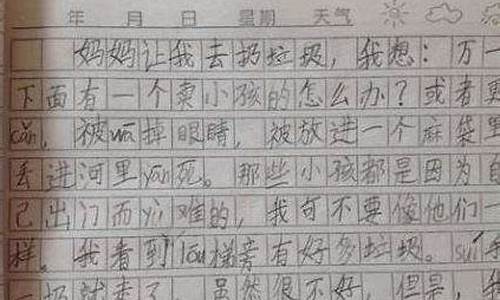 年 月 日 星期 天气
妈妈让我去扔垃圾，我想：万一
下面有一个卖小孩的怎么办？或者更
cǎn，被wā掉眼睛，被放进一个麻袋里
丢进河里yān死。那些小孩都是因为自
己出门而yù难的，我可不要像他们一
样。我看到lóu梯旁有好多垃圾。suí手
一扔就来了 虽然很不好，但是，